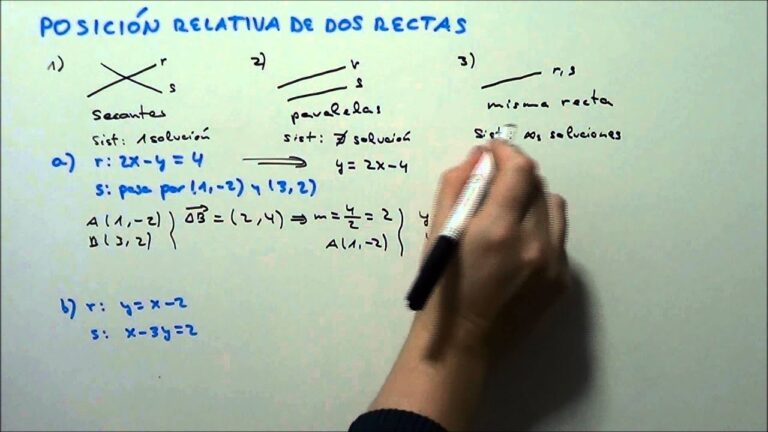 POSICIÓN RELATIVA DE DOS RECTAS
1) r s
2) r s
3) r, s
secantes
paralelas
misma recta
sist: 1 solución
sist: ∄ solución
sist: ∞s soluciones
a) r: 2x-y=4 ⟹ y=2x-4
s: pasa por (1,-2) y (3,2)
A(1,-2) } AB=(2,4) ⟹ m=4/2=2 } y
B(3,2) A(1,-2)
b) r: y=x-2
s: x-3y=2